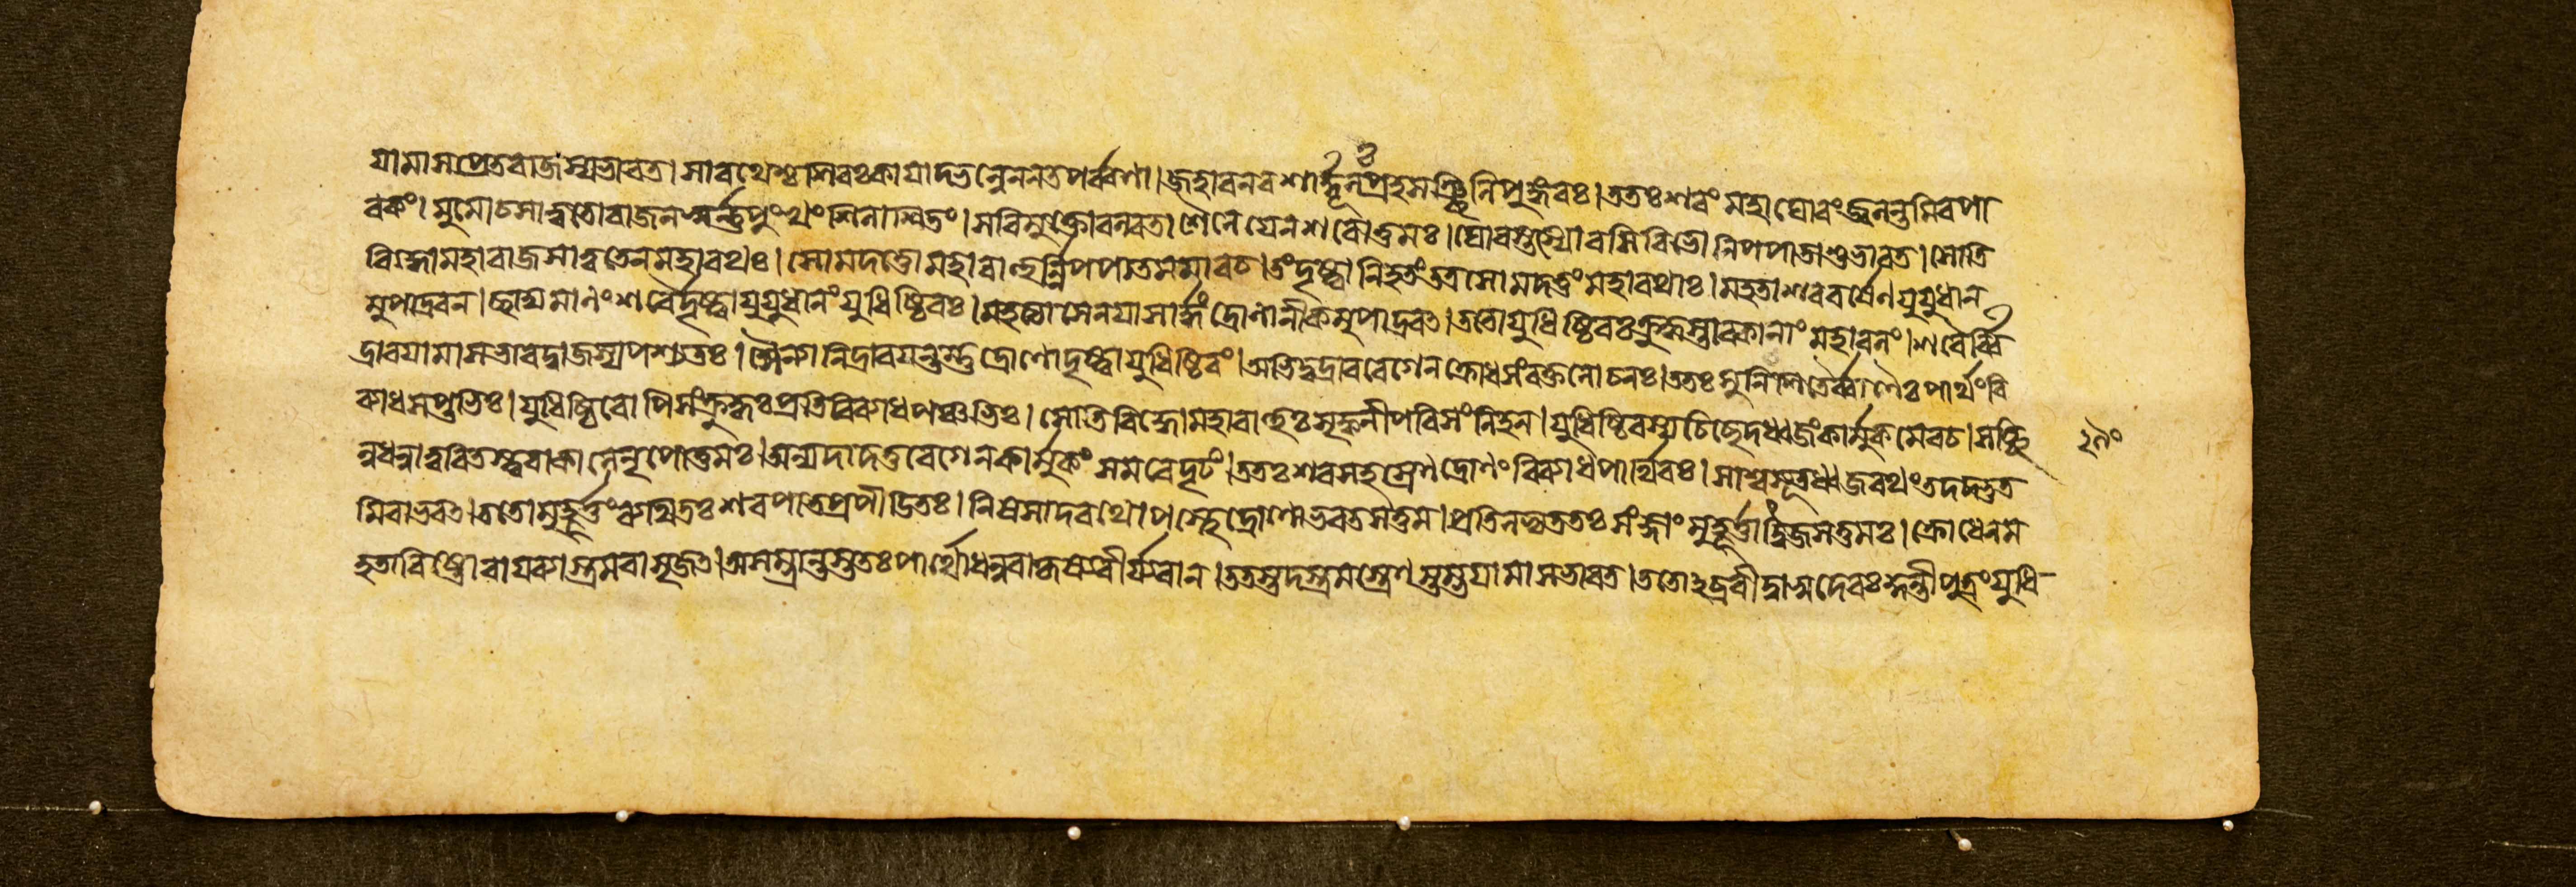 যামাসপ্রেতরাজস্যভারত। সারথেশ্চশিরঃকাযাদভল্লেনানতপর্ব্বণা। জহারনরশার্দ্দূলঃপ্রহসঞ্ছিনিপুঙ্গবঃ। ততঃশরংমহাঘোরংজ্বলন্তমিবপা
বকং। মুমোচসাত্বতোরাজনস্বর্ণপুংখংশিলাশিতং। সবিমুক্তোবলবতা শৈনেযেনশরোত্তমঃ। ঘোরস্তস্যোরসিবিভোনিপপাতাশুভারত। সোতি
বিদ্ধোমহারাজসাত্বতেনমহারথঃ। সোমদত্তোমহাবাহুর্ন্নিপপাতমমারচ। তংদৃষ্ট্বা নিহতংতত্রসোমদত্তংমহারথাঃ। মহতাশরবর্ষেণযুযুধান
মুপাদ্রবন। ছাদ্যমানংশরৈর্দৃষ্ট্বাযুযুধানংযুধিষ্ঠিরঃ। মহত্যাসেনযাসার্দ্ধংদ্রোণানীকমুপাদ্রবত। ততোযুধিষ্ঠিরঃক্রুদ্ধস্তাবকানাংমহাবলং। শরৈর্ব্বি
দ্রাবযামাসভারদ্বাজস্যপশ্যতঃ। সৈন্যানিদ্রাবযন্তন্তুদ্রোণোদৃষ্ট্বাযুধিষ্ঠিরং। অভিদুদ্রাববেগেনক্রোধসংরক্তলোচনঃ। ততঃসুনিশিতৈর্ব্বাণৈঃপার্থংবি
ব্যাধসপ্তভিঃ। যুধিষ্ঠিরোপিসংক্রুদ্ধঃপ্রতিবিব্যাধপঞ্চভিঃ। সোতিবিদ্ধোমহাবাহুঃসৃক্কনীপরিসংলিহন। যুধিষ্ঠিরস্যচিচ্ছেদধ্বজংকার্মুকমেবচ। সচ্ছি
ন্নধন্বাত্বরিতস্ত্বরাকালেনৃপোত্তমঃ। অন্যদাদত্তবেগেনকার্মুকংসমরেদৃঢং। ততঃশরসহস্রেণদ্রোণংবিব্যাধপার্থিবঃ। সাশ্বসূতধ্বজরথংতদদভুত
মিবাভবত। ততোমুহূর্ত্তংব্যথিতঃশরপাতপ্রপীডিতঃ। নিষসাদরথোপস্থেদ্রোণোভরতসত্তম। প্রতিলভ্যততঃসংজ্ঞাংমুহূর্ত্তাদ্দ্বিজসত্তমঃ। ক্রোধেনম
হতাবিষ্টোবাযব্যাস্ত্রমবাসৃজত। অসম্ভ্রান্তস্ততঃপার্থোধনুরাকৃষ্যবীর্য্যবান। ততস্তদস্ত্রমস্ত্রেণস্তম্ভযামাসভারত। ততোঽব্রবীদ্বাসুদেবঃকুন্তীপুত্রংযুধি-